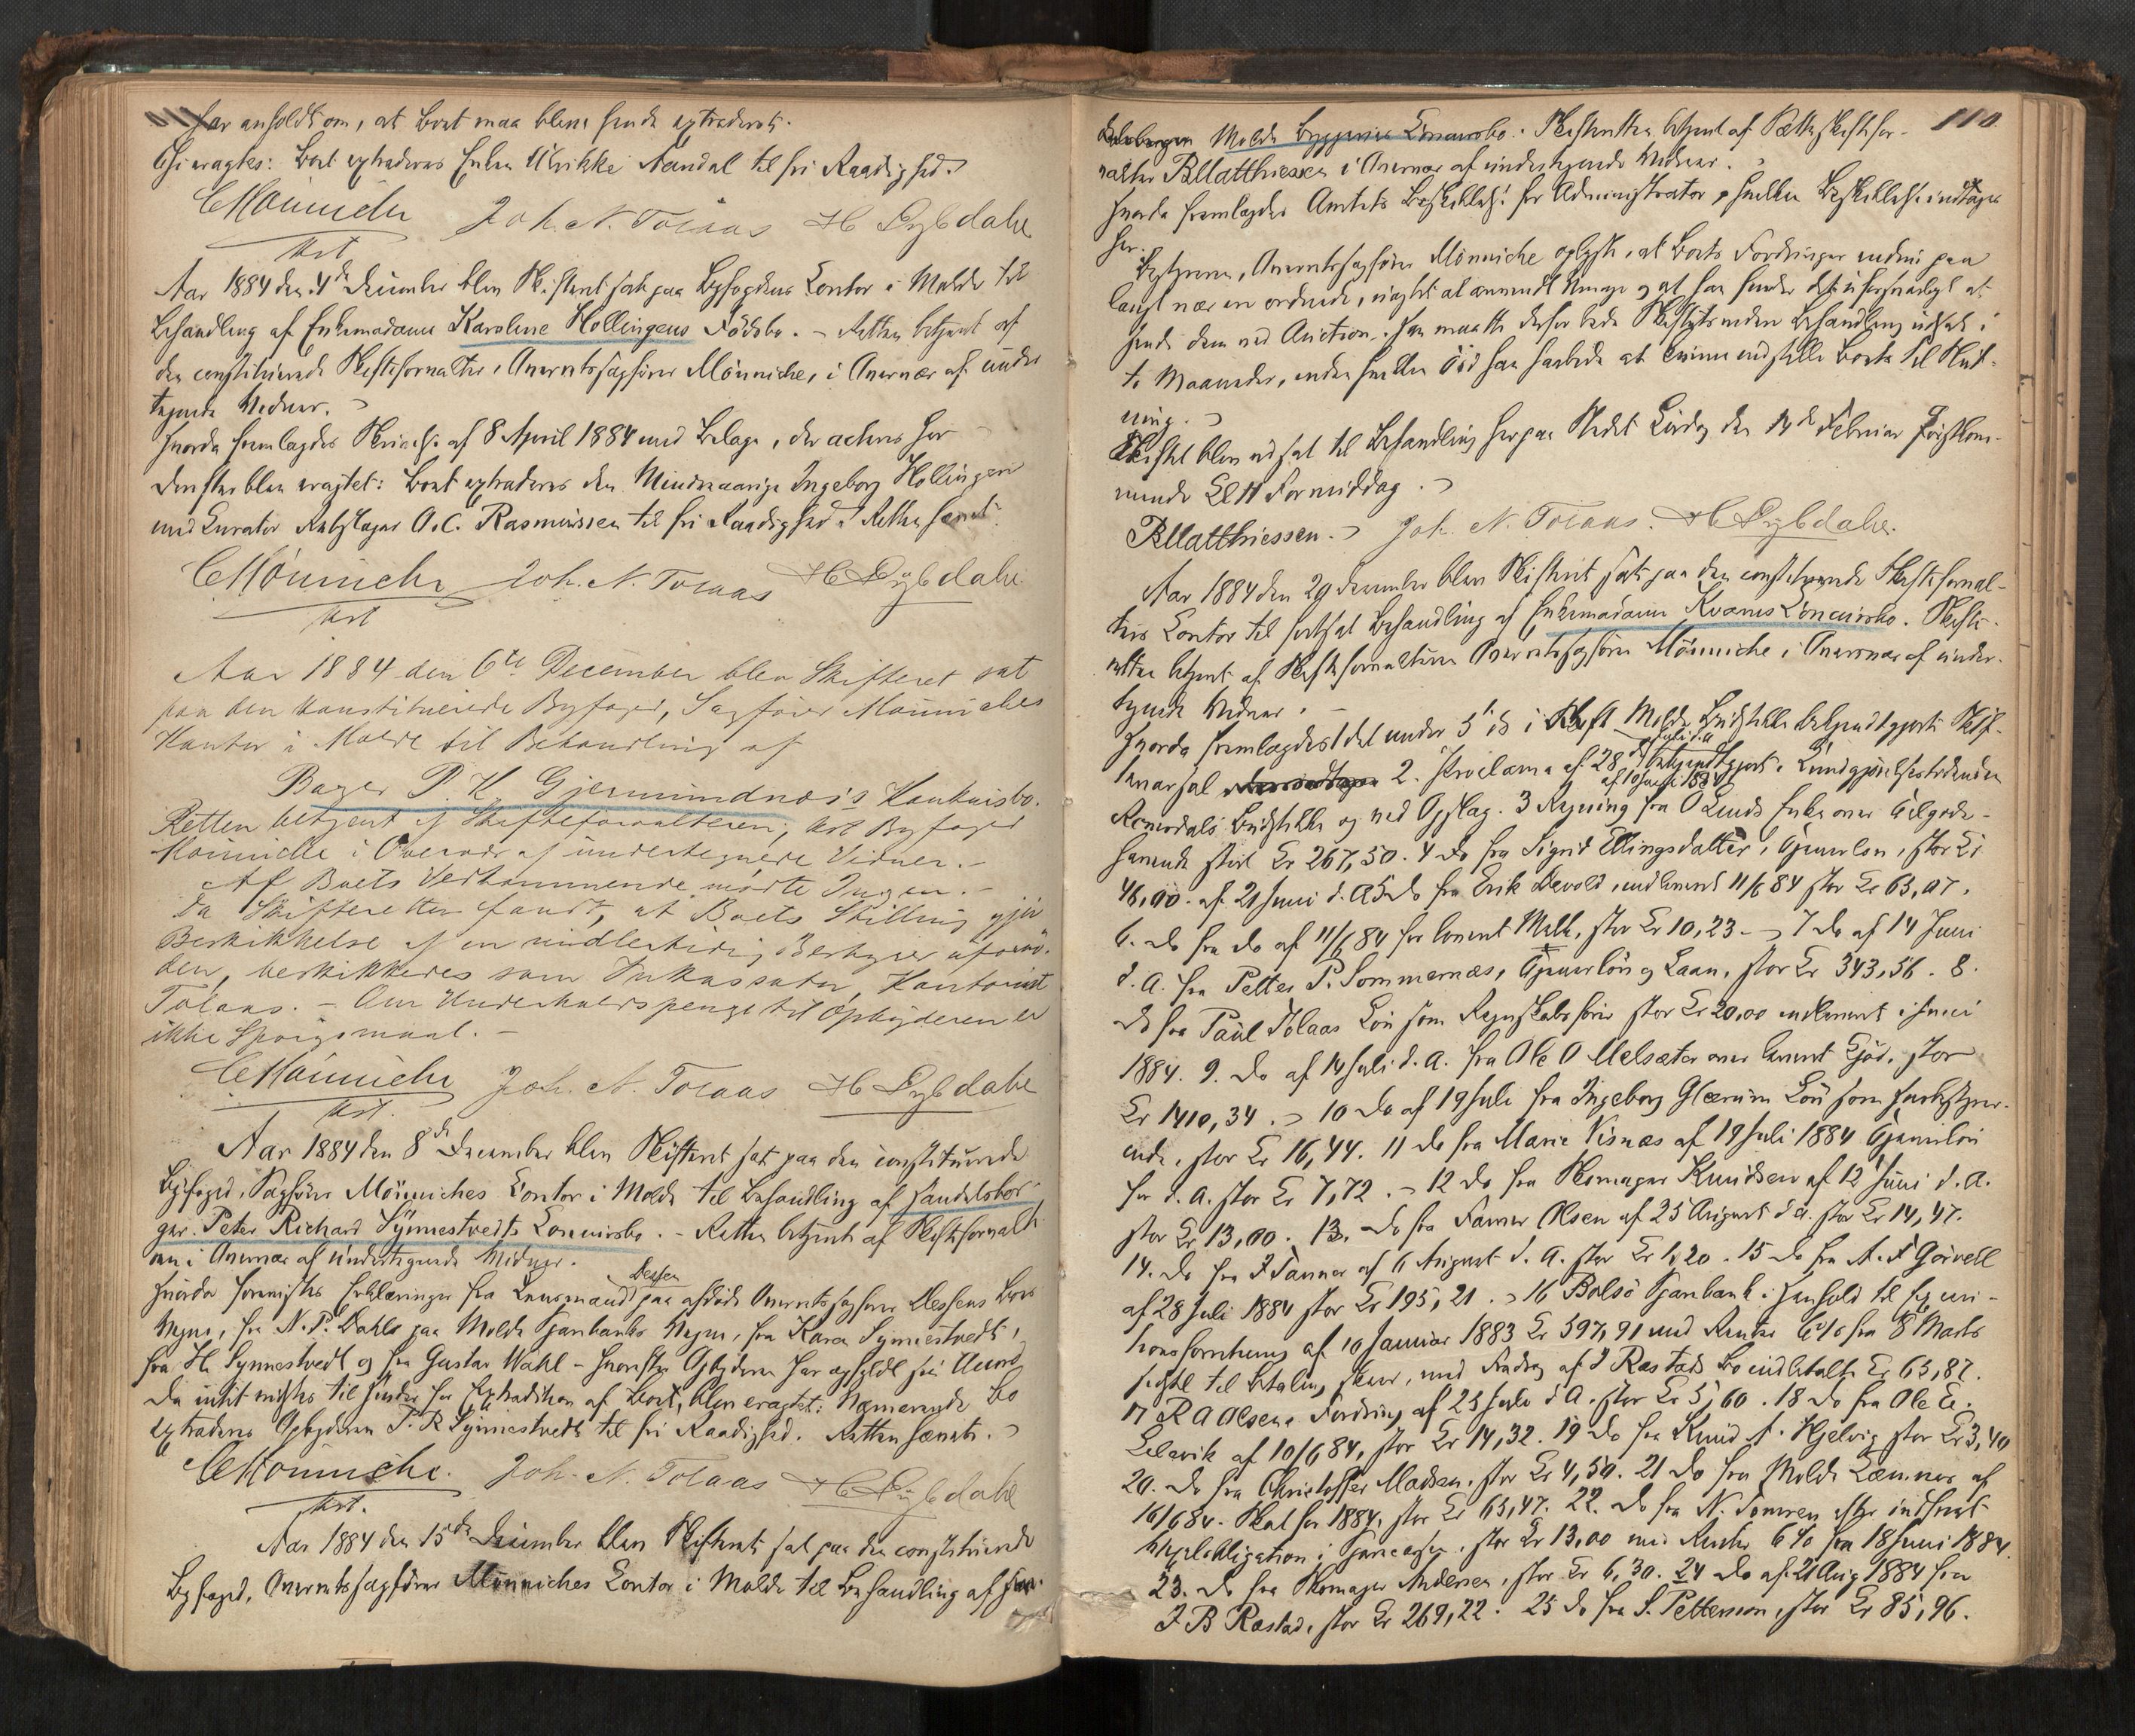 har anholdt om, at Boet maa blive hende extraderet.
Thi eragtes: Boet extraderes Enken Ulrikke Aandal til fri Raadighed.
CMönniche Joh. N. Tolaas H Dybdahl
kst
Aar 1884 den 4de December blev Skifteret sat paa Byfogdens Contor i Molde til
Behandling af Enkemadame Karoline Hollingens Dödsbo. – Retten betjent af
den constituerede Skifteforvalter, Overretssagförer Mönniche, i Overvær af under
tegnede Vidner.
Hvorda fremlagdes Skrivelse af 8 April 1884 med Bilage, der acteres her
Derefter blev eragtet: Boet extraderes den Mindreaarige Ingeborg Hollingen
med Curator Rebslager O. C. Rasmussen til fri Raadighed. Retten hævet.
CMönniche Joh. N. Tolaas H Dybdahl
kst
Aar 1884 den 6te December blev Skifteret sat
paa den konstituerede Byfoged, Sagförer Mönniches
Kontor i Molde til Behandling af
Bager P. K. Gjermundnæs's Konkursbo.
Retten betjent af Skifteforvalteren, kst Byfoged
Mönniche i Overvær af undertegnede Vidner. –
Af Boets Vedkommende mödte Ingen. –
Da Skifteretten fandt, at Boets Stilling gjör
Beskikkelse af en midlertidig Bestyrer uforn̈ö-
den, beskikkedes som Inkassator, Kontorist
Tolaas. – Om Underholdspenge til Opbyderen er
ikke Spörgsmaal. –
CMönniche Joh. N. Tolaas H Dybdahl
kst.
Aar 1884 den 8de December blev Skifteret sat paa den constituerede
Byfoged, Sagförer Mönniches Contor i Molde til Behandling af Handelsbor-
ger Peter Richard Synnestvedts Concursbo. – Retten betjent af Skifteforvalt
eren i Overvær af undertegnede Vidner.
Hvorda forevistes Erklæringer fra Lensmand Dessen paa afdöde Overretssagförer Dessens Boes
Vegne, fra N. P. Dahls paa Molde Sparebanks Vegne, fra Karen Synnestvedt,
fra H. Synnestvedt og fra Gustav Wahl – hvorefter Opbyderen har opfyldt sin Accord
Da intet vistes til Hinder for Extradition af Boet, blev eragtet: Nærværende Bo
extraderes Opbyderen P. R Synnestvedt til fri Raadighed. Retten hævet.
CMönniche. Joh. N. Tolaas H Dybdahl
kst.
Aar 1884 den 15de December blev Skifteret sat paa den constituerede
Byfoged, Overretssagförer Mönniches Contor i Molde til Behandling af
110
Molde Byggeries Concursbo. Skifteretten betjent af Sætteskiftefor-
valter BMatthiessen i Overvær af undertegnede Vidner.
Hvorda fremlagdes Amtets Beskikkelse for Administrator, hvilken Beskikkelse indtages
her.
Bestyreren, Overretssagförer Mönniche oplyste, at Boets Fordringer endnu paa
langt nær er ordnede, uagtet al anvendt Umage og at han finder det uforsvarligt at
sende dem ved Auction. Han maatte derfor bede Skiftets videre Behandling udsat i
to Maaneder, inden hvilken Tid han haabede at kunne indstille Boet til Slut-
ning.
Skiftet blev udsat til Behandling her paa Stedet Lördag den 14de Februar förstkom-
mende Kl 11 Formiddag.
BMatthiessen. Joh. N. Tolaas. H Dybdahl.
Aar 1884 den 29 December blev Skifteret sat paa den constituerede Skifteforval-
ters Contor til fortsat Behandling af Enkemadame Kvams Concursbo. Skifte-
retten betjent af Skifteforvalteren Overretssagförer Mönniche i Overvær af under-
tegnede Vidner. –
2. Proclama af 28de Juli d. a. bekjendtgjort i Kundgjörelsestidenden
af 10 Juni 1884
Romsdals Budstikke og ved Opslag. 3 Regning fra O Lunds Enke over Tilgode-
havende stor Kr 267,50. 4 Do fra Sigrid Ellingsdatter, Tjenerlön, stor Kr
46,00. af 21 Juni d. A 5 Do fra Erik Devold, indleveret 11/6 84 stor Kr 63,07.
6. Do fra Do af 11/6 84 for leveret Melk, stor Kr 10,23. 7 Do af 14 Juni
d. A. fra Petter P. Sommernæs, Tjenerlön og Laan, stor Kr 343,56. 8.
Do fra Paul Tolaas Lön som Regnskabsförer stor Kr 20,00 indleveret i Juni
1884. 9. Do af 14 Juli d. A. fra Ole O Melsæter over leveret Kjöd, stor
Kr 1410,34. 10 Do af 19 Juli fra Ingeborg Glærum Lön som Husbestyrer-
inde, stor Kr 16,44. 11 Do fra Marie Visnæs af 19 Juli 1884 Tjenerlön
for d. A. stor Kr 7,72. 12 Do fra Skomager Knudsen af 12 Juni d. A.
stor Kr 13,00. 13. Do fra Farver Olsen af 25 August d A. stor Kr 14,47.
14. Do fra J Fanner af 6 August d. A. stor Kr 1,20. 15 Do fra A. F Görvell
af 28 Juli 1884 stor Kr 195,21. 16 Bolsö Sparebank i Henhold til Execu-
tionsforretning af 10 Januar 1883 Kr 597,91 med Renter 6% fra 8 Marts
til Betaling sker, med Fradrag af J Rastads Bo indbetalte Kr 63,87.
17 R A Olsens Fordring af 23 Juli d A. stor Kr 5,60. 18 Do fra Ole E.
Eelvik af 10/6 84, stor Kr 14,32. 19 Do fra Knud A. Hjelvig stor Kr 3,40
20. Do fra Christoffer Madsen, stor Kr 4,50. 21 Do fra Molde Kæmner af
16/6 84. Skat for 1884, stor Kr 63,47. 22. Do fra N. Tomren efter indfriet
Obligation i Sparecasse, stor Kr 13,00 med Renter 6% fra 18 Juni 1884.
23. Do fra Skomager Andersen, stor Kr 6,30. 24 Do af 21 Aug 1884 fra
J B Rastad, stor Kr 269,22. 25 Do fra S. Petterson, stor Kr 85,96.